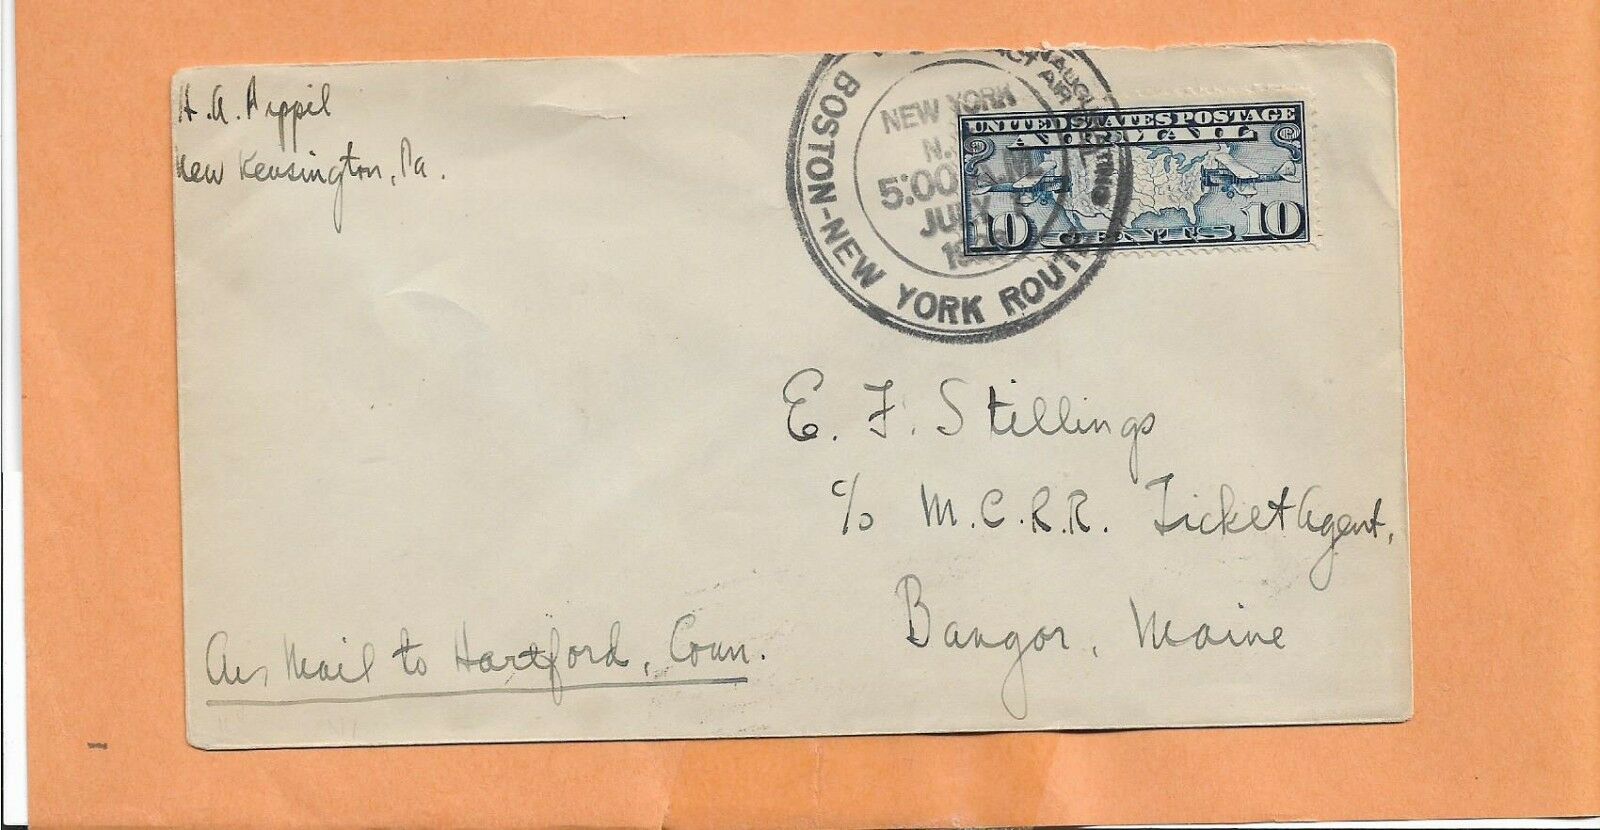 H. A. Pippil
New Kensington, Pa.
BOSTON-NEW YORK ROUTE
NEW YORK
5:00
JULY
UNITED STATES POSTAGE
AIR MAIL
10 CENTS 10
E. F. Stillings
c/o M.C.R.R. Ticket Agent,
Bangor, Maine
Air Mail to Hartford, Conn.